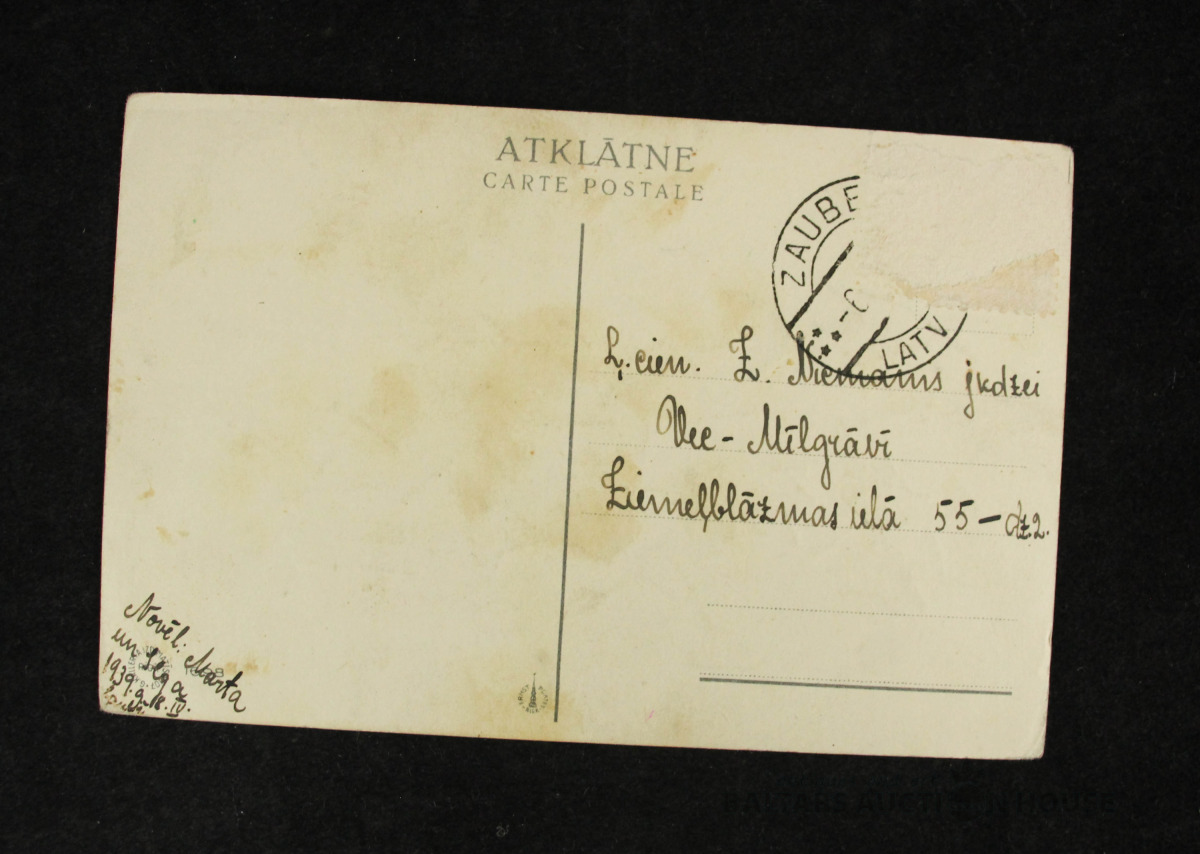 ATKLĀTNE
CARTE POSTALE
ZAUBE
LATV
Ļ. cien. Z. Niemans jkdzei
Vec - Mīlgrāvī
Ziemeļblāzmas ielā 55 - dz. 2.
Novēl: Marta
un Ilga
1939. g. 18. IV.
BALTARS AUCTION HOUSE